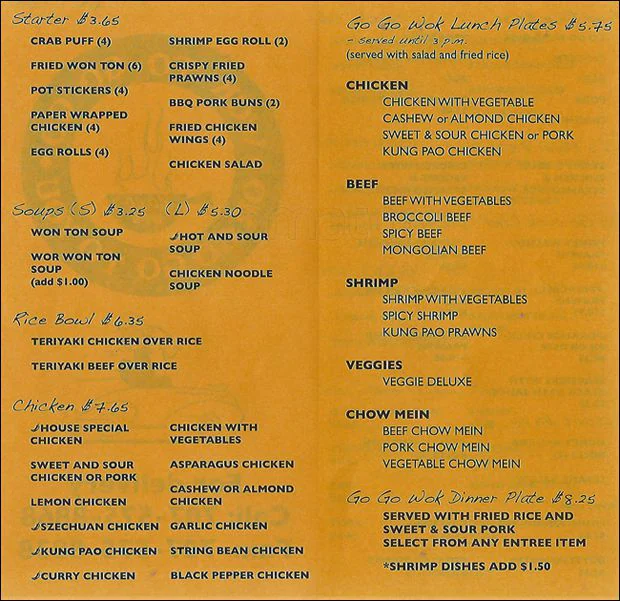 Starter $3.65
CRAB PUFF (4)
FRIED WON TON (6)
POT STICKERS (4)
PAPER WRAPPED
CHICKEN (4)
EGG ROLLS (4)
SHRIMP EGG ROLL (2)
CRISPY FRIED
PRAWNS (4)
BBQ PORK BUNS (2)
FRIED CHICKEN
WINGS (4)
CHICKEN SALAD
Soups (S) $3.25 (L) $5.30
WON TON SOUP
WOR WON TON
SOUP
(add $1.00)
HOT AND SOUR
SOUP
CHICKEN NOODLE
SOUP
Rice Bowl $6.35
TERIYAKI CHICKEN OVER RICE
TERIYAKI BEEF OVER RICE
Chicken $7.65
HOUSE SPECIAL
CHICKEN
SWEET AND SOUR
CHICKEN OR PORK
LEMON CHICKEN
SZECHUAN CHICKEN
KUNG PAO CHICKEN
CURRY CHICKEN
CHICKEN WITH
VEGETABLES
ASPARAGUS CHICKEN
CASHEW OR ALMOND
CHICKEN
GARLIC CHICKEN
STRING BEAN CHICKEN
BLACK PEPPER CHICKEN
Go Go Wok Lunch Plates $5.75
- served until 3 p.m.
(served with salad and fried rice)
CHICKEN
CHICKEN WITH VEGETABLE
CASHEW or ALMOND CHICKEN
SWEET & SOUR CHICKEN or PORK
KUNG PAO CHICKEN
BEEF
BEEF WITH VEGETABLES
BROCCOLI BEEF
SPICY BEEF
MONGOLIAN BEEF
SHRIMP
SHRIMP WITH VEGETABLES
SPICY SHRIMP
KUNG PAO PRAWNS
VEGGIES
VEGGIE DELUXE
CHOW MEIN
BEEF CHOW MEIN
PORK CHOW MEIN
VEGETABLE CHOW MEIN
Go Go Wok Dinner Plate $8.25
SERVED WITH FRIED RICE AND
SWEET & SOUR PORK
SELECT FROM ANY ENTREE ITEM
*SHRIMP DISHES ADD $1.50